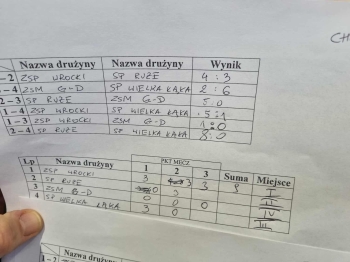 CH
Nazwa drużyny Nazwa drużyny Wynik
-2 ZSP WROCKI SP RUŻE 4:3
-4 ZSM G-D SP WIELKA ŁĄKA 2:6
2-3 SP RUŻE ZSM G-D 5:0
1-4 ZSP WROCKI SP WIELKA ŁĄKA 5:1
1-3 ZSP WROCKI ZSM G-D :0
2-4 SP RUŻE SP WIELKA ŁĄKA 8:0
PKT MECZ
Lp Nazwa drużyny 1 2 3 Suma Miejsce
1 ZSP WROCKI 3 3 3 9 I
2 SP RUŻE 0 3 II
3 ZSM G-D 0 0 0 IV
4 SP WIELKA ŁĄKA 3 0 III
Nazwa drużyny